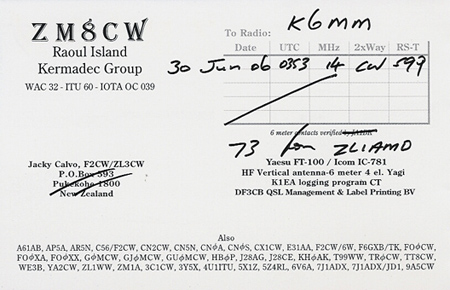 ZM8CW
Raoul Island
Kermadec Group
WAC 32 - ITU 60 - IOTA OC 039
To Radio: K6MM
Date UTC MHz 2xWay RS-T
30 Jun 06 0353 14 CW 599
6 meter contacts verified by
73 from ZL1AMO
Jacky Calvo, F2CW/ZL3CW
P.O.Box 593
Pukekohe 1800
New Zealand
Yaesu FT-100 / Icom IC-781
HF Vertical antenna-6 meter 4 el. Yagi
K1EA logging program CT
DF3CB QSL Management & Label Printing BV
Also
A61AB, AP5A, AR5N, C56/F2CW, CN2CW, CN5N, CNØA, CNØS, CX1CW, E31AA, F2CW/6W, F6GXB/TK, FOØCW,
FOØXA, FOØXX, GØMCW, GJØMCW, GUØMCW, HBØP, J28AG, J28CE, KHØAK, T99WW, TRØCW, TT8CW,
WE3B, YA2CW, ZL1WW, ZM1A, 3C1CW, 3Y5X, 4U1ITU, 5X1Z, 5Z4RL, 6V6A, 7J1ADX, 7J1ADX/JD1, 9A5CW